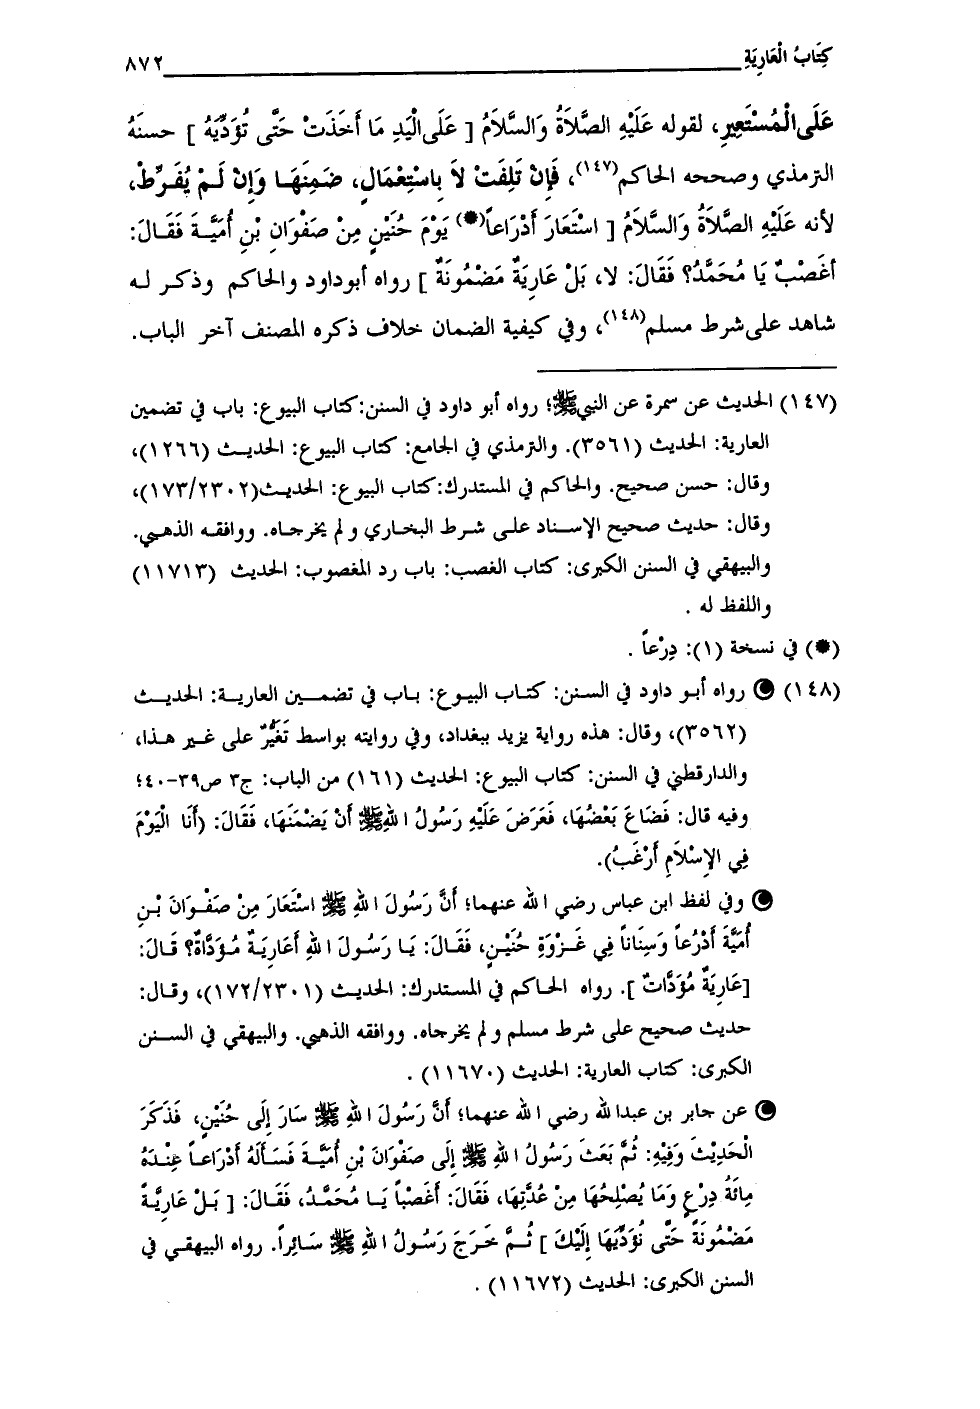 كِتَابُ الْعَارِيَةِ ٨٧٢
عَلَى الْمُسْتَعِيرِ، لقوله عَلَيْهِ الصَّلاَةُ وَالسَّلاَمُ [ عَلَى الْيَدِ مَا أَخَذَتْ حَتَّى تُؤَدِّيَهُ ] حسنَهُ
الترمذي وصححه الحاكم(١٤٧)، فَإِنْ تَلِفَتْ لاَ بِاسْتِعْمَالٍ، ضَمِنَهَا وَإِنْ لَمْ يُفَرِّطْ،
لأنه عَلَيْهِ الصَّلاَةُ وَالسَّلاَمُ [ اسْتَعَارَ أَدْرَاعاً(*) يَوْمَ حُنَيْنٍ مِنْ صَفْوَانَ بْنِ أُمَيَّةَ فَقَالَ:
أغَصْبٌ يَا مُحَمَّدُ؟ فَقَالَ: لا، بَلْ عَارِيَةٌ مَضْمُونَةٌ ] رواه أبوداود والحاكم وذكر له
شاهد على شرط مسلم(١٤٨)، وفي كيفية الضمان خلاف ذكره المصنف آخر الباب.
(١٤٧) الحديث عن سمرة عن النبي ﷺ؛ رواه أبو داود في السنن:كتاب البيوع: باب في تضمين
العارية: الحديث (٣٥٦١). والترمذي في الجامع: كتاب البيوع: الحديث (١٢٦٦)،
وقال: حسن صحيح. والحاكم في المستدرك:كتاب البيوع: الحديث(١٧٣/٢٣٠٢)،
وقال: حديث صحيح الإسناد على شرط البخاري ولم يخرجاه. ووافقه الذهبي.
والبيهقي في السنن الكبرى: كتاب الغصب: باب رد المغصوب: الحديث (١١٧١٣)
واللفظ له .
(*) في نسخة (١): دِرْعاً .
(١٤٨) رواه أبو داود في السنن: كتاب البيوع: باب في تضمين العارية: الحديث
(٣٥٦٢)، وقال: هذه رواية يزيد ببغداد، وفي روايته بواسط تَغَيُّرٌ على غير هذا،
والدارقطني في السنن: كتاب البيوع: الحديث (١٦١) من الباب: ج٣ ص٣٩-٤٠؛
وفيه قال: فَضَاعَ بَعْضُهَا، فَعَرَضَ عَلَيْهِ رَسُولُ اللهِ ﷺ أَنْ يَضْمَنَهَا، فَقَالَ: (أَنَا الْيَوْمَ
فِي الإِسْلاَمِ أَرْغَبُ).
وفي لفظ ابن عباس رضي الله عنهما؛ أَنَّ رَسُولَ اللهِ ﷺ اسْتَعَارَ مِنْ صَفْوَانَ بْنِ
أُمَيَّةَ أَدْرُعاً وَسِنَاناً فِي غَزْوَةِ حُنَيْنٍ، فَقَالَ: يَا رَسُولَ اللهِ أَعَارِيَةٌ مُؤَدَّاةٌ؟ قَالَ:
[عَارِيَةٌ مُؤَدَّاتٌ ]. رواه الحاكم في المستدرك: الحديث (١٧٢/٢٣٠١)، وقال:
حديث صحيح على شرط مسلم ولم يخرجاه. ووافقه الذهبي. والبيهقي في السنن
الكبرى: كتاب العارية: الحديث (١١٦٧٠) .
عن جابر بن عبدالله رضي الله عنهما؛ أَنَّ رَسُولَ اللهِ ﷺ سَارَ إِلَى حُنَيْنٍ، فَذَكَرَ
الْحَدِيْثَ وَفِيْهِ: ثُمَّ بَعَثَ رَسُولُ اللهِ ﷺ إِلَى صَفْوَانَ بْنِ أُمَيَّةَ فَسَأَلَهُ أَدْرَاعاً عِنْدَهُ
مِائَةُ دِرْعٍ وَمَا يُصْلِحُهَا مِنْ عُدَّتِهَا، فَقَالَ: أَغَصْباً يَا مُحَمَّدُ، فَقَالَ: [ بَلْ عَارِيَّةً
مَضْمُونَةً حَتَّى نُؤَدِّيَهَا إِلَيْكَ ] ثُمَّ خَرَجَ رَسُولُ اللهِ ﷺ سَائِراً. رواه البيهقي في
السنن الكبرى: الحديث (١١٦٧٢) .